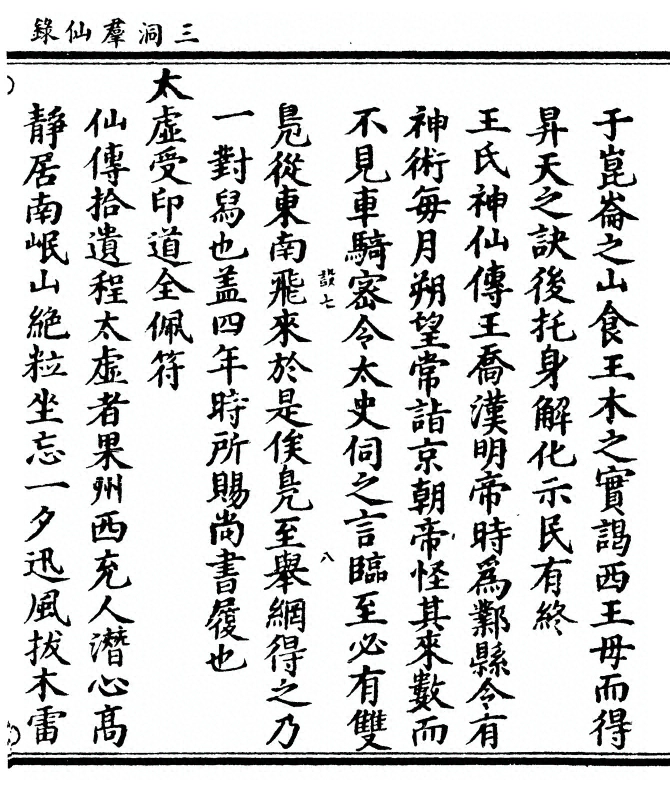 三洞羣仙錄
于崑崙之山食玉木之實謁西王母而得
昇天之訣後托身解化示民有終
王氏神仙傳王喬漢明帝時爲鄴縣令有
神術每月朔望常詣京朝帝怪其來數而
不見車騎密令太史伺之言臨至必有雙
鳧從東南飛來於是俟鳧至舉網得之乃
一對舄也盖四年時所賜尚書履也
太虛受印道全佩符
仙傳拾遺程太虛者果州西充人潛心髙
靜居南岷山絶粒坐忘一夕迅風拔木雷
設七
八